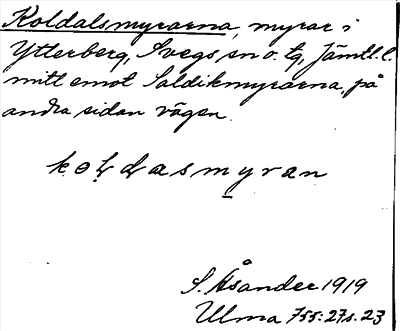 Koldalsmyrarna, myrar i
Ytterberg, Svegs sn o. tg, Jämtl. l.
mitt emot Saldikmyrarna, på
andra sidan vägen.
kɵḷḍasmyran
S. Åsander 1919
Ulma 755:27 s. 23